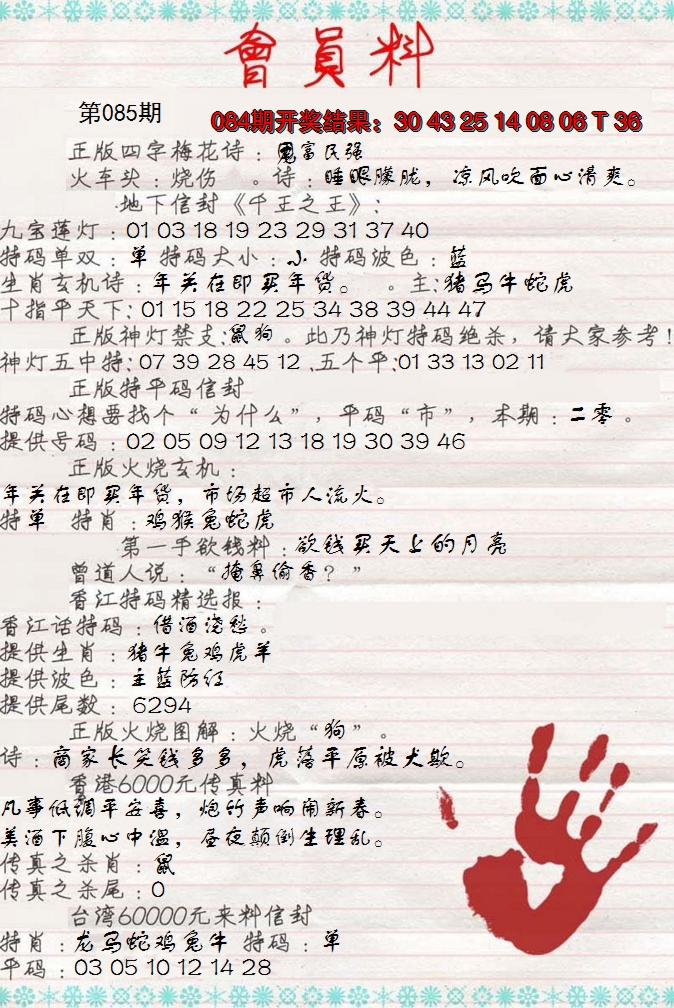 會員料
第085期
084期开奖结果：30 43 25 14 08 06 T 36
正版四字梅花诗：国富民强
火车头：烧伤 。诗：睡眼朦胧，凉风吹面心清爽。
地下信封《千王之王》：
九宝莲灯：01 03 18 19 23 29 31 37 40
特码单双：单 特码大小：小 特码波色：蓝
生肖玄机诗：年关在即买年货。 。主：猪马牛蛇虎
十指平天下：01 15 18 22 25 34 38 39 44 47
正版神灯禁支：鼠狗。此乃神灯特码绝杀，请大家参考！
神灯五中特：07 39 28 45 12 .五个平：01 33 13 02 11
正版特平码信封
特码心想要找个“为什么”，平码“市”，本期：二零。
提供号码：02 05 09 12 13 18 19 30 39 46
正版火烧玄机：
年关在即买年货，市场超市人流火。
特单 特肖：鸡猴兔蛇虎
第一手欲钱料：欲钱买天上的月亮
曾道人说：“掩鼻偷香？”
香江特码精选报：
香江话特码：借酒浇愁。
提供生肖：猪牛兔鸡虎羊
提供波色：主蓝防红
提供尾数：6294
正版火烧图解：火烧“狗”。
诗：商家长笑钱多多，虎落平原被犬欺。
香港6000元传真料
凡事低调平安喜，炮竹声响闹新春。
美酒下腹心中温，昼夜颠倒生理乱。
传真之杀肖：鼠
传真之杀尾：0
台湾60000元来料信封
特肖：龙马蛇鸡兔牛 特码：单
平码：03 05 10 12 14 28